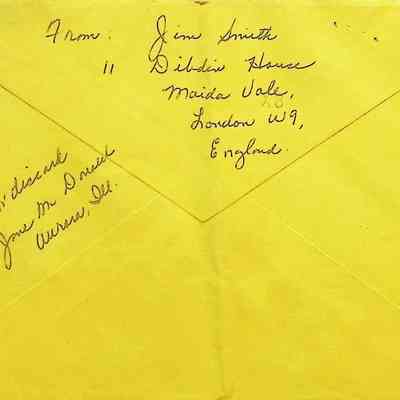 From: Jim Smith
11 Dibdin House
Maida Vale,
London W9,
England.
discard
Jane Mc Donald
Aurora, Ill.